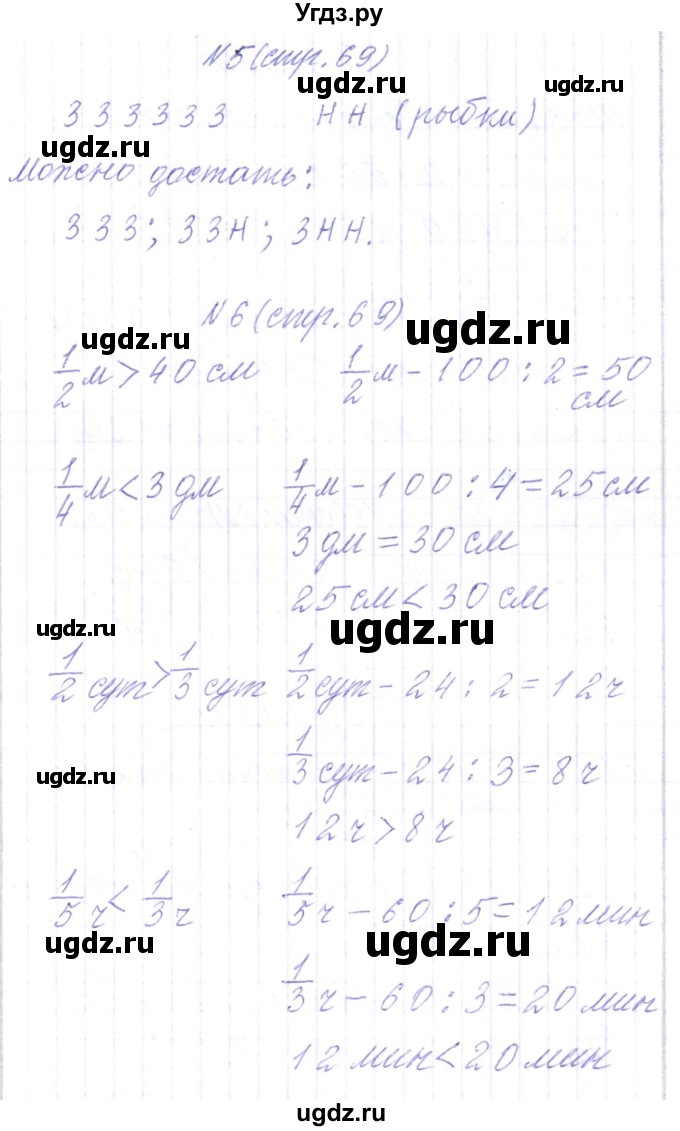 Угдз.ру
№5 (стр. 69)
ugdz.ru ugdz.ru
З З З З З З Н Н (рыбки)
ugdz.ru
Можно достать:
З З З; З З Н; З Н Н.
№6 (стр. 69)
ugdz.ru ugdz.ru
1/2 м > 40 см 1/2 м - 100 : 2 = 50 см
1/4 м < 3 дм 1/4 м - 100 : 4 = 25 см
3 дм = 30 см
25 см < 30 см
ugdz.ru ugdz.ru
1/2 сут > 1/3 сут 1/2 сут - 24 : 2 = 12 ч
1/3 сут - 24 : 3 = 8 ч
ugdz.ru
12 ч > 8 ч
1/5 ч < 1/3 ч 1/5 ч - 60 : 5 = 12 мин
ugdz.ru ugdz.ru
1/3 ч - 60 : 3 = 20 мин
12 мин < 20 мин
ugdz.ru